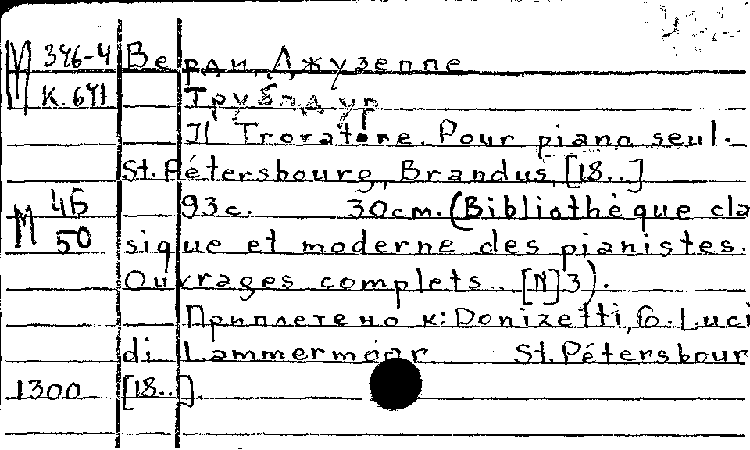 М 346-4 Верди, Джузеппе
К.641 Трубадур
Il Trovatore. Pour piano seul.
St. Pétersbourg, Brandus, [18..]
М 46 93с. 30см. (Bibliothèque cla
50 sique et moderne des pianistes.
Ouvrages complets. [N]3).
Приплетено к: Donizetti, G. Luci
di Lammermoor St. Pétersbour
1300 [18..].